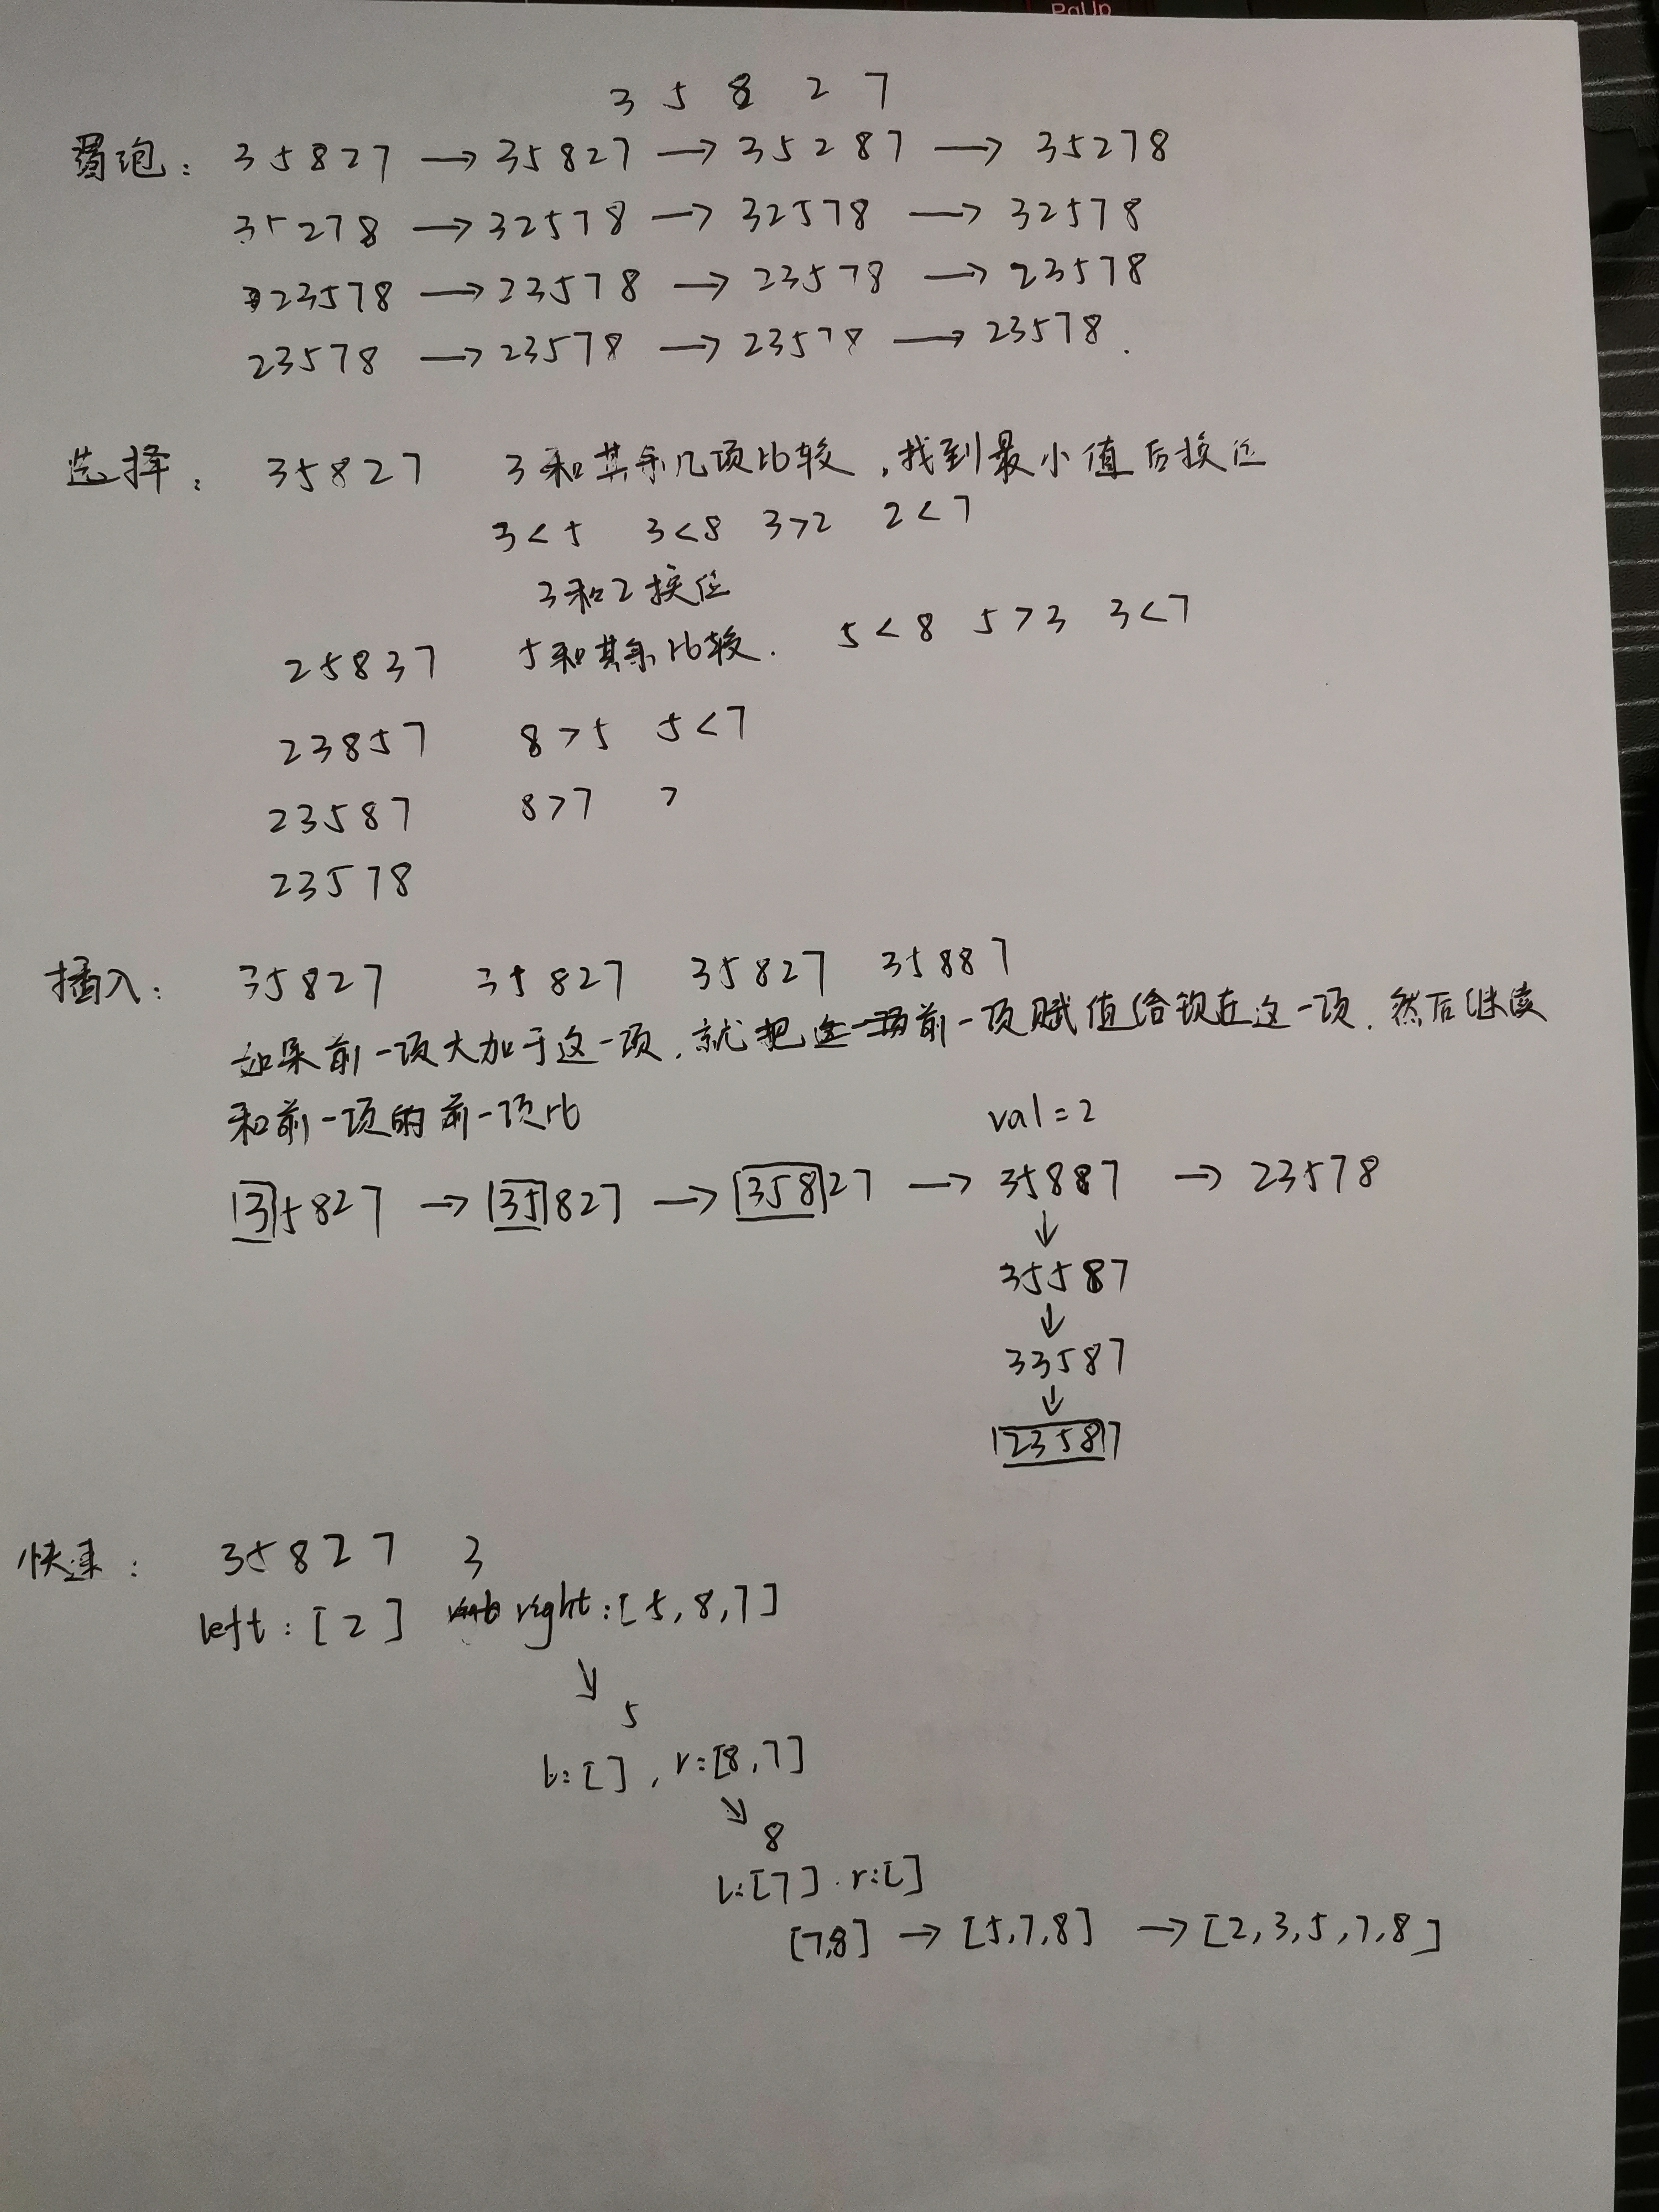 PgUp
3 5 8 2 7
冒泡: 35827 → 35827 → 35287 → 35278
35278 → 32578 → 32578 → 32578
23578 → 23578 → 23578 → 23578
23578 → 23578 → 23578 → 23578.
选择: 35827 3和其余几项比较,找到最小值后换位
3<5 3<8 3>2 2<7
3和2换位
25837 5和其余比较. 5<8 5>3 3<7
23857 8>5 5<7
23587 8>7 >
23578
插入: 35827 35827 35827 35887
如果前一项大于这一项,就把前一项赋值给现在这一项.然后继续
和前一项的前一项比
val=2
|3|5827 → |35|827 → |358|27 → 35887 → 23578
↓
35587
↓
33587
↓
|2358|7
快速: 35827 3
left:[2] right:[5,8,7]
↘
5
l:[], r:[8,7]
↘
8
l:[7]. r:[]
[7,8] → [5,7,8] → [2,3,5,7,8]